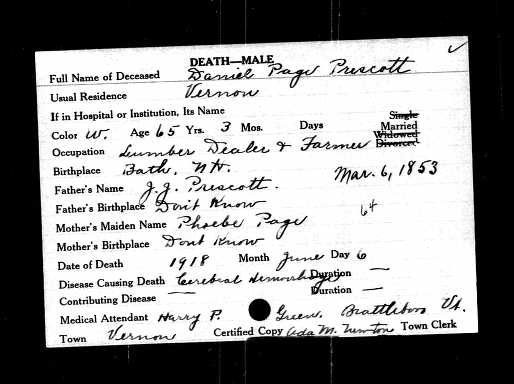 DEATH—MALE
Full Name of Deceased Daniel Page Prescott
Usual Residence Vernon
If in Hospital or Institution, Its Name
Color W. Age 65 Yrs. 3 Mos. Days Single Married Widowed Divorced
Occupation Lumber Dealer & Farmer
Birthplace Bath, N.H. Mar. 6, 1853
Father's Name J. J. Prescott.
Father's Birthplace Don't Know 64
Mother's Maiden Name Phoebe Page
Mother's Birthplace Dont Know
Date of Death 1918 Month June Day 6
Disease Causing Death Cerebral Hemorrhage Duration —
Contributing Disease — Duration —
Medical Attendant Harry P. Green, Brattleboro Vt.
Town Vernon Certified Copy Ada M. Newton Town Clerk